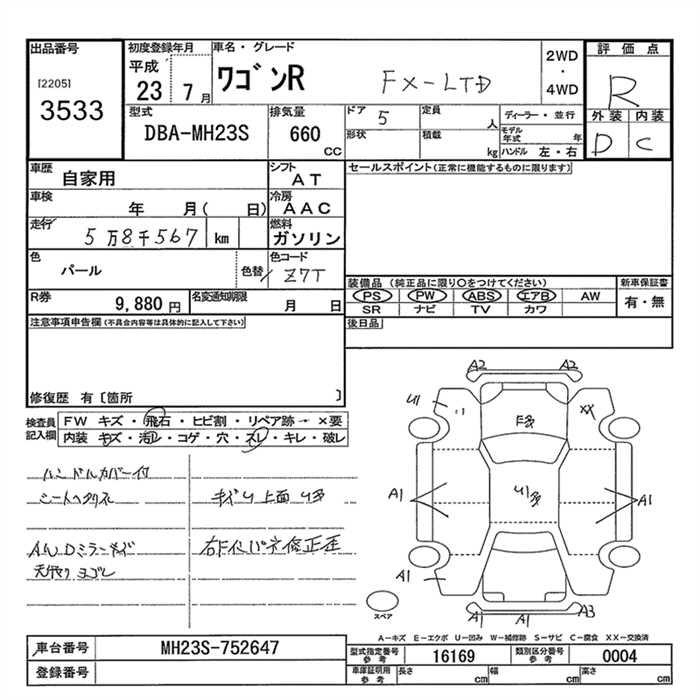 出品番号
[2205]
3533
初度登録年月
平成
23 7月
車名・グレード
ワゴンR
FX-LTD
2WD
・
4WD
評価点
R
外装 内装
D C
型式
DBA-MH23S
排気量
660
CC
ドア 5
形状
定員 人
積載 kg
ディーラー・並行
モデル年式 年
ハンドル 左・右
車歴
自家用
車検
年 月( 日)
走行
5万8千567 km
色
パール
シフト
AT
冷房
AAC
燃料
ガソリン
色替
色コード
Z7T
R券 9,880円
名変通知期限 月 日
セールスポイント(正常に機能するものに限ります)
装備品 (純正品に限り〇をつけてください)
PS PW ABS エアB AW
SR ナビ TV カワ
新車保証書
有・無
後日品
注意事項申告欄(不具合内容等は具体的に記入して下さい)
修復歴 有〔箇所 〕
検査員
記入欄
FW キズ・飛石・ヒビ割・リペア跡→×要
内装 キズ・汚レ・コゲ・穴・スレ・キレ・破レ
ハンドルカバー付
上面
ミラー
右
修正歪
A2 A2
U1
XX
A1
A1
A1
A1 A1 A3
スペア
A-キズ E-エクボ U-凹み W-補修跡 S-サビ C-腐食 XX-交換済
車台番号 MH23S-752647
登録番号
型式指定番号
参考
16169
類別区分番号
参考
0004
車庫証明用
参考
長さ cm
幅 cm
高さ cm